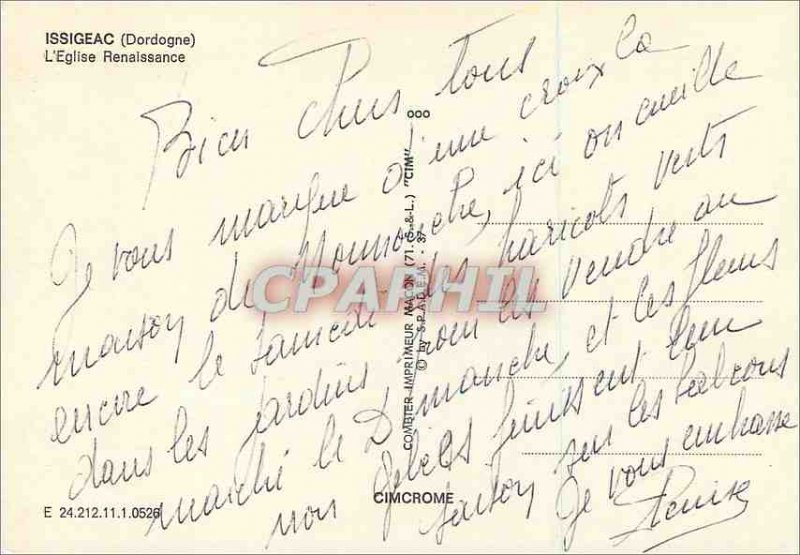 ISSIGEAC (Dordogne)
L'Eglise Renaissance
Bien Chers tous
Je vous marque d'une croix la
maison de, ici on cueille
encore le samedi des haricots verts
dans les jardins, pour les vendre au
marché le Dimanche, et les fleurs
non gelées finissent leur
saison sur les balcons
Je vous embrasse
Denise
ooo
COMBIER IMPRIMEUR MACON (71. (S.-&-L.) "CIM"
© by S.P.A.D.E.M. - 37
CPARHIL
CIMCROME
E 24.212.11.1.0526